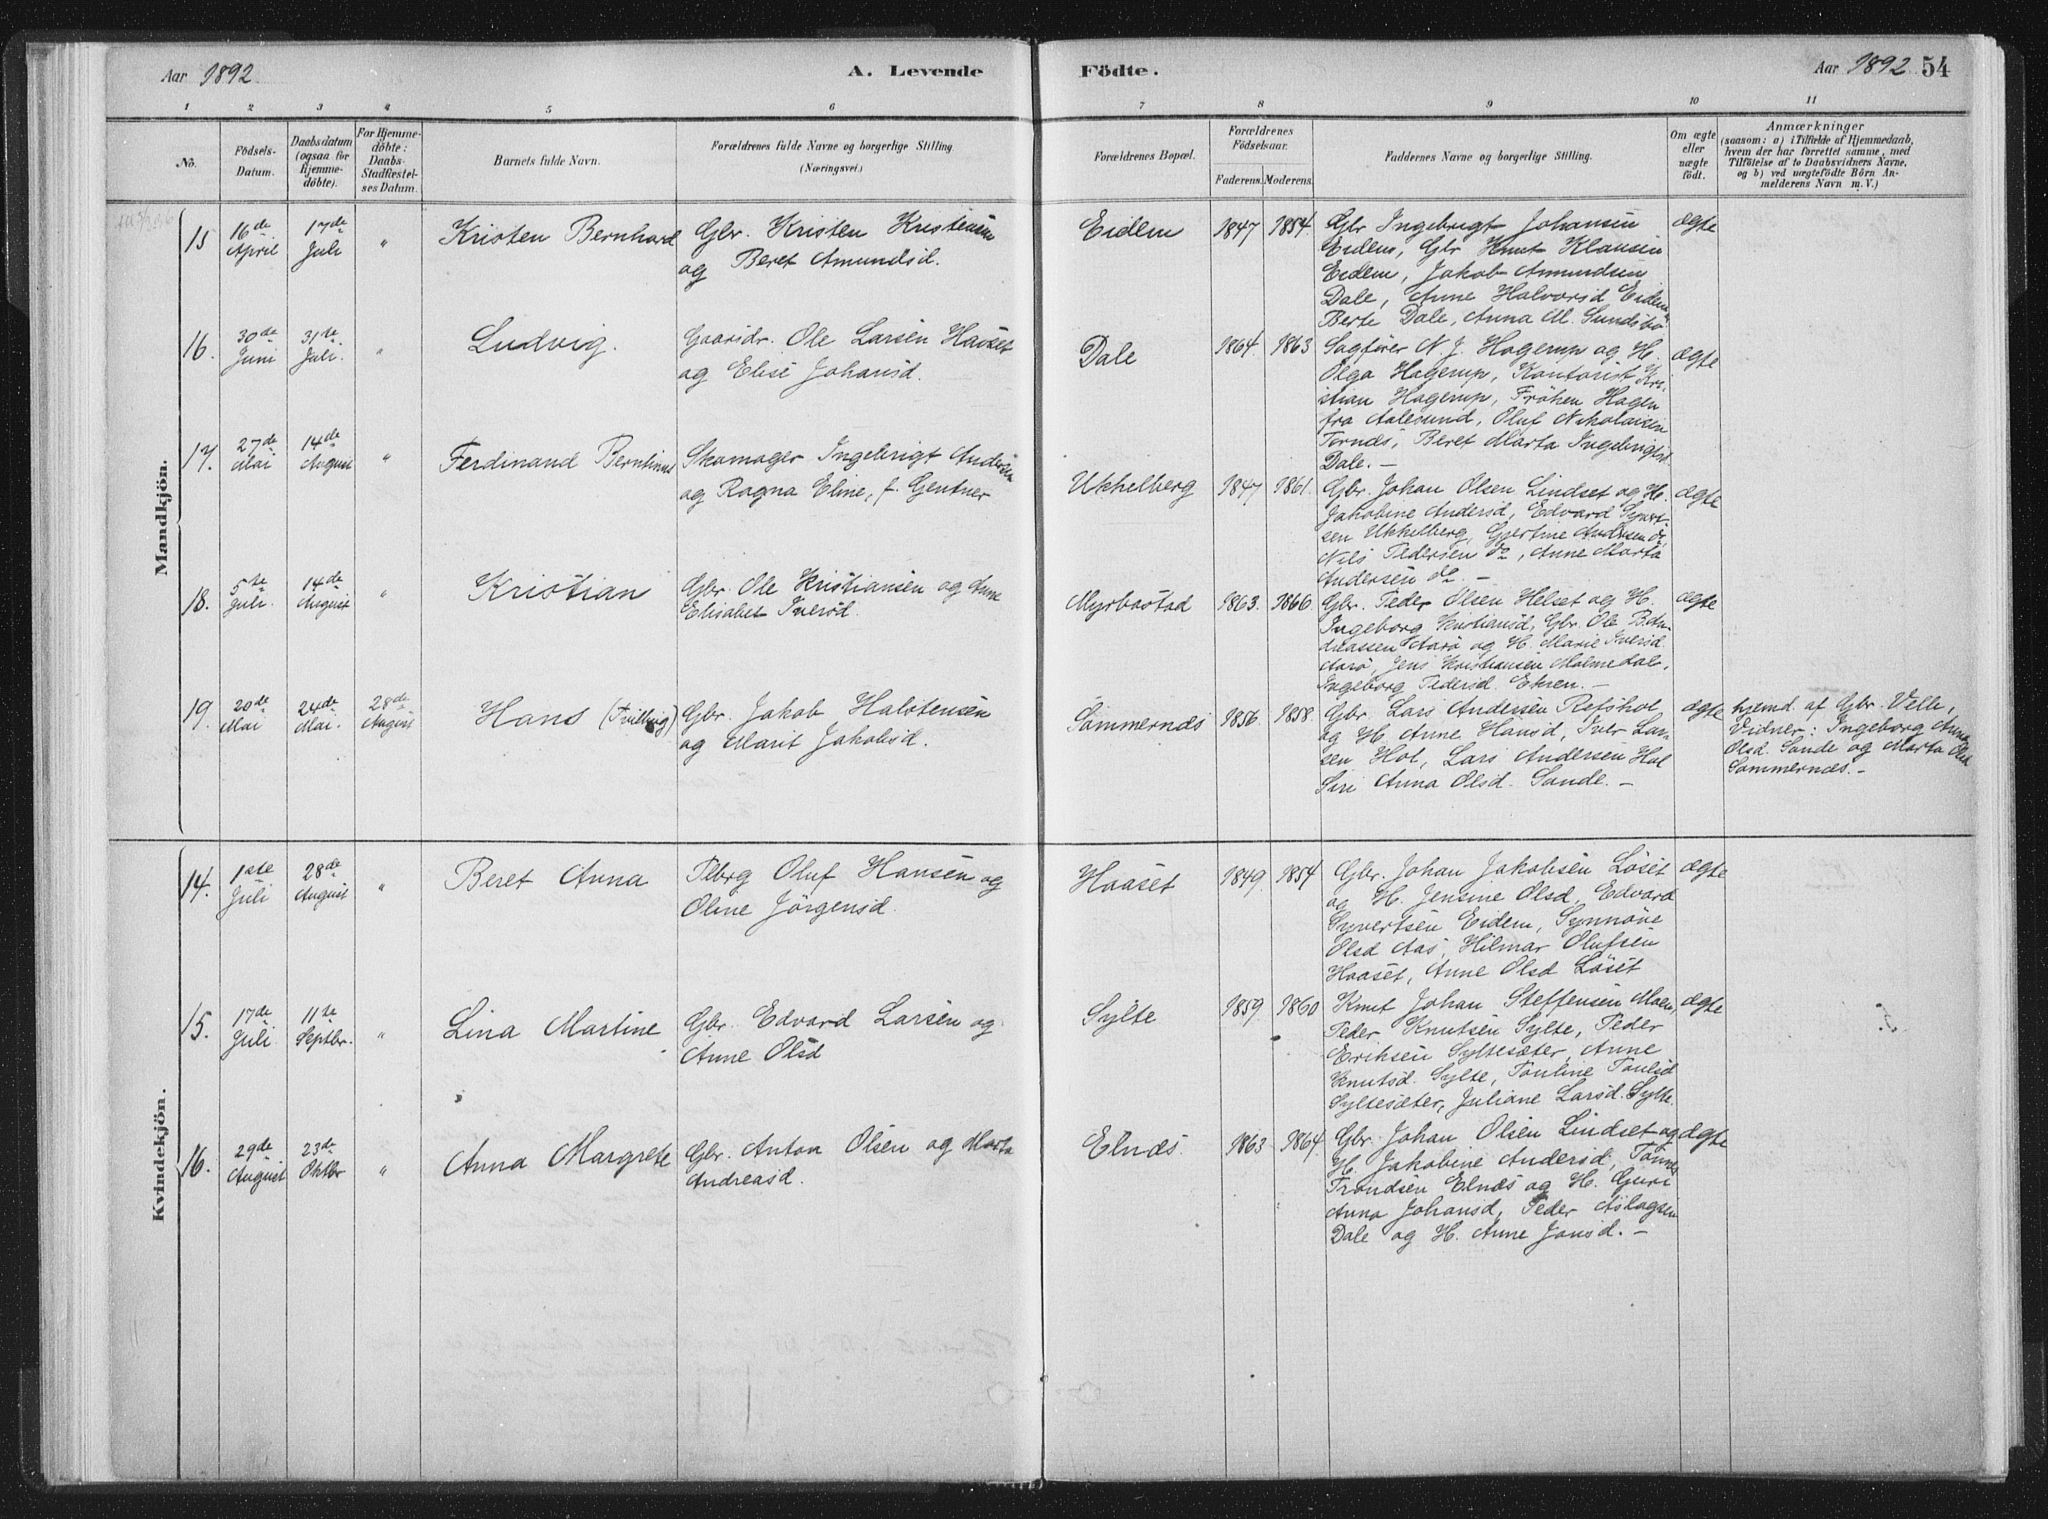 Aar 1892.
A. Levende
Födte.
Aar 1892 54
1 2 3 4 5 6 7 8 9 10 11
No.
Födsels-
Datum.
Daabsdatum
(ogsaa for
Hjemme-
döbte).
For Hjemme-
döbte:
Daabs-
Stadfæstel-
ses Datum.
Barnets fulde Navn.
Forældrenes fulde Navne og borgerlige Stilling
(Næringsvei.)
Forældrenes Bopæl.
Forældrenes
Födselsaar.
Faderens. Moderens.
Faddernes Navne og borgerlige Stilling.
Om ægte
eller
uægte
födt.
Anmærkninger
(saasom: a) i Tilfælde af Hjemmedaab,
hvem der har forrettet samme, med
Tilföielse af to Daabsvidners Navne,
og b) ved uægtefödte Börn An-
melderens Navn m. V.)
Mandkjön.
15
16de
April
17de
Juli
"
Kristen Bernhard
Gbr. Kristen Kristensen
og Beret Amundsd.
Eidem
1847 1854.
Gbr Ingebrigt Johansen
Eidem, Gbr Knut Klausen
Eidem, Jakob Amundsen
Dale, Anne Halvorsd Eidem
Berte Dale, Anna M. Sundsbö
ægte
16.
30de
Juni
31te
Juli.
"
Ludvig.
Gaardbr. Ole Larsen Haaset
og Elise Johansd.
Dale
1864. 1863
Sagförer N. J. Hagerup og H.
Olga Hagerup, Kontorist Kri-
stian Hagerup, Fröken Hagen
fra Aalesund, Oluf Nikolaisen
Tornes, Beret Marta Ingebrigtsd.
Dale. —
ægte
17.
27de
Mai
14de
August
"
Ferdinand Bernhard
Skomager Ingebrigt Andersen
og Ragna Eline, f. Gentner
Ukkelberg
1847 1861.
Gbr. Johan Olsen Lindset og H.
Jakobine Andersd, Edvard Syvert-
sen Ukkelberg, Gjertine Andersen do,
Nils Pedersen do, Anne Marta
Andersen do. —
ægte
18.
5te
Juli.
14de
August
"
Kristian
Gbr. Ole Kristiansen og Anne
Elisabet Iversd.
Myrbostad
1863. 1866.
Gbr. Peder Olsen Helset og H.
Ingeborg Kristiansd, Gbr. Ole
Aarö og H. Marie Iversd.
Aarö, Jens Kristiansen Malmedal,
Ingeborg Pedersd. —
ægte
19.
20de
Mai
24de
Mai.
28de
August
Hans (Tvilling)
Gbr. Jakob Halstensen
og Marit Jakobsd.
Sommernæs
1856. 1858.
Gbr. Lars Andersen Refshol
og H. Anne Hansd, Iver Lar-
sen Hol, Lars Andersen Hol
Siri Anna Olsd. Sande. —
ægte
hjemd. af Gbr. Velle,
Vidner: Ingeborg Anna
Olsd. Sande og Marta Olsd
Sommernæs. —
Kvindekjön.
14.
1ste
Juli
28de
August
"
Beret Anna
Pebrg Oluf Hansen og
Oline Jörgensd.
Haaset
1849. 1854.
Gbr. Johan Jakobsen Löset
og H. Jensine Olsd, Edvard
Syvertsen Eidem, Synnöve
Olsd Aas, Hilmar Olufsen
Haaset, Anne Olsd Löset
ægte
15.
17de
Juli
11te
Septbr.
"
Lina Martine
Gbr. Edvard Larsen og
Anne Olsd
Sylte
1859. 1860
Knut Johan Steffensen Moen,
Peder Knutsen Sylte, Peder
Eriksen Syltesæter, Anne
Knutsd. Sylte, Pauline Paulsd
Syltesæter, Juliane Larsd. Sylte.
ægte
16.
29de
August
23de
Oktbr
"
Anna Margrete
Gbr. Anton Olsen og Marta
Andreasd.
Elnæs.
1863 1864.
Gbr. Johan Olsen Lindset og
H. Jakobine Andersd, Tönnes
Trondsen Elnæs og H. Guri
Anna Johansd, Peder Aslagsen
Dale og H. Anne Jonsd. —
ægte